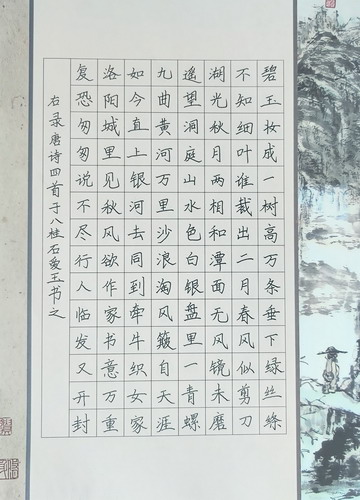 碧玉妆成一树高万条垂下绿丝绦
不知细叶谁裁出二月春风似剪刀
湖光秋月两相和潭面无风镜未磨
遥望洞庭山水色白银盘里一青螺
九曲黄河万里沙浪淘风簸自天涯
如今直上银河去同到牵牛织女家
洛阳城里见秋风欲作家书意万重
复恐匆匆说不尽行人临发又开封
右录唐诗四首于八桂石爱玉书之